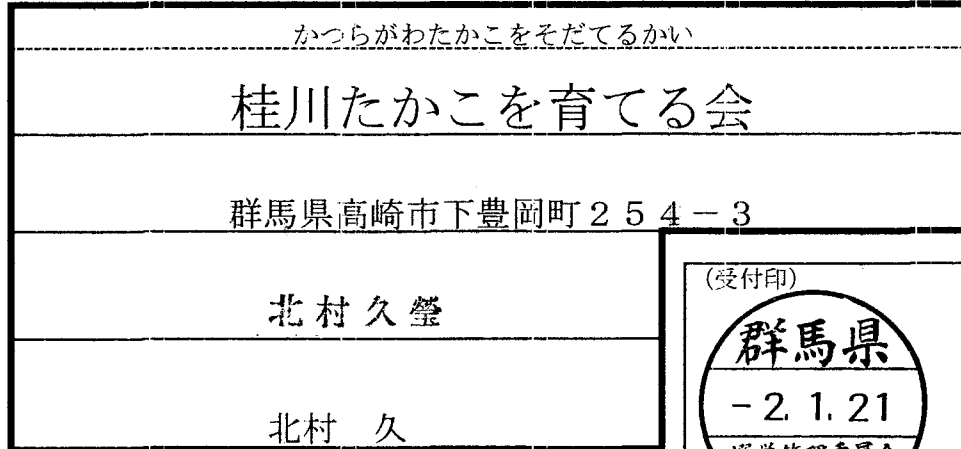 かつらがわたかこをそだてるかい
桂川たかこを育てる会
群馬県高崎市下豊岡町254-3
北村久瑩
北村 久
(受付印)
群馬県
-2.1.21